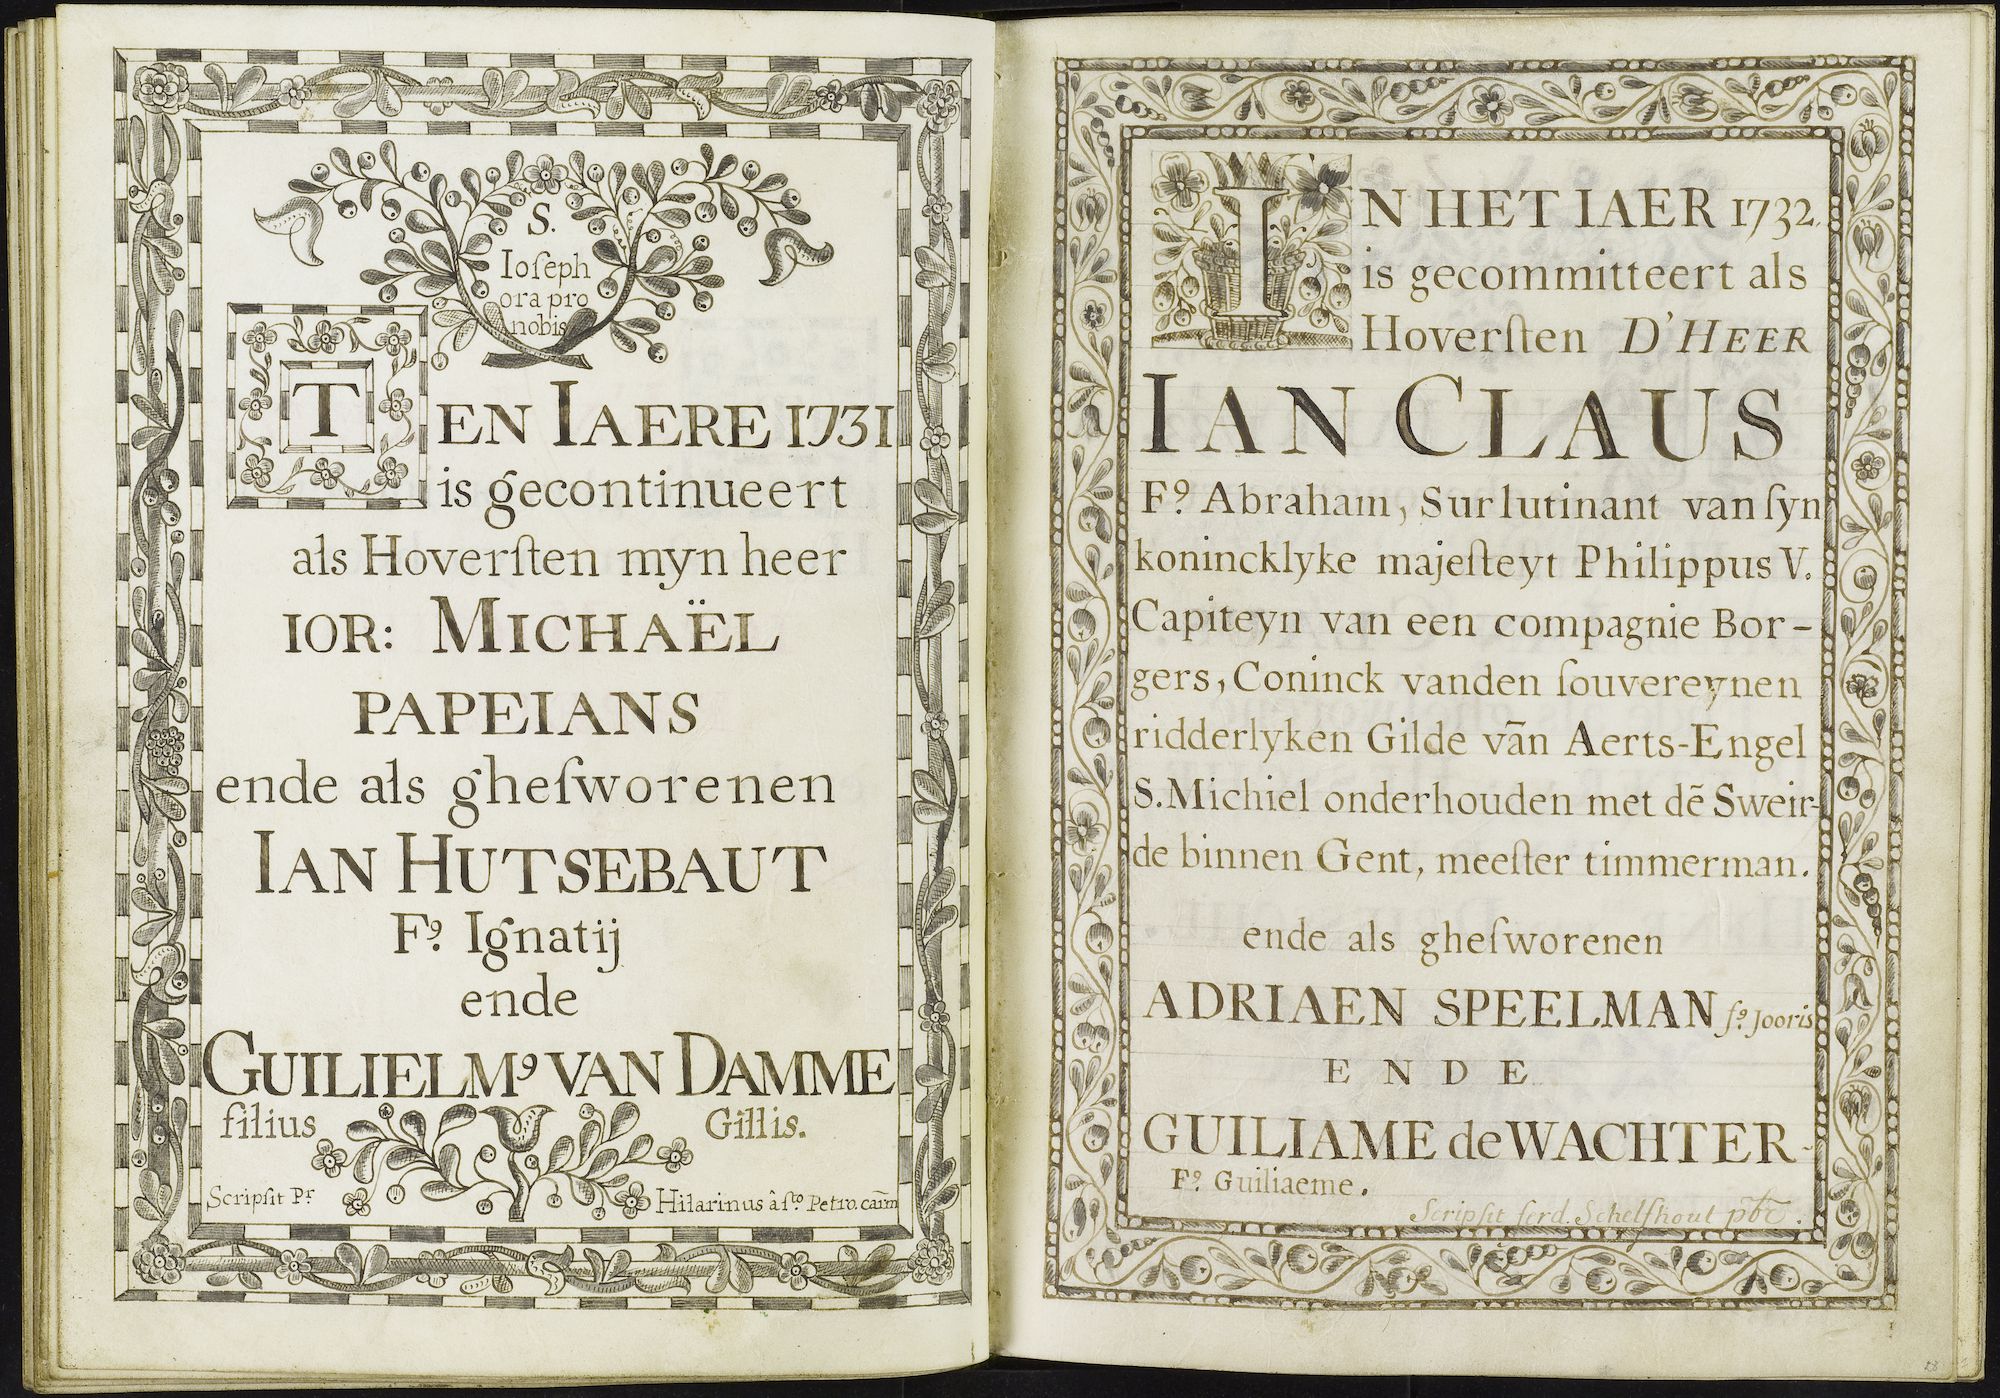 S.
Ioſeph
ora pro
nobis
TEN IAERE 1731
is gecontinueert
als Hoverſten myn heer
IOR: MICHAËL
PAPEIANS
ende als gheſworenen
IAN HUTSEBAUT
Fꝰ. Ignatij
ende
GUILIELMꝰ VAN DAMME
filius Gillis.
Scripſit Pr. Hilarinus â ſto. Petro. carm̄
IN HET IAER 1732.
is gecommitteert als
Hoverſten D'HEER
IAN CLAUS
Fꝰ. Abraham, Surlutinant van ſyn
konincklyke majeſteyt Philippus V.
Capiteyn van een compagnie Bor-
gers, Coninck vanden ſouvereynen
ridderlyken Gilde vān Aerts-Engel
S. Michiel onderhouden met dē Sweir-
de binnen Gent, meeſter timmerman.
ende als gheſworenen
ADRIAEN SPEELMAN fꝰ. Jooris
ENDE
GUILIAME de WACHTER-
Fꝰ. Guiliaeme.
Scripſit ferd. Schelſhout pbr̄.
28